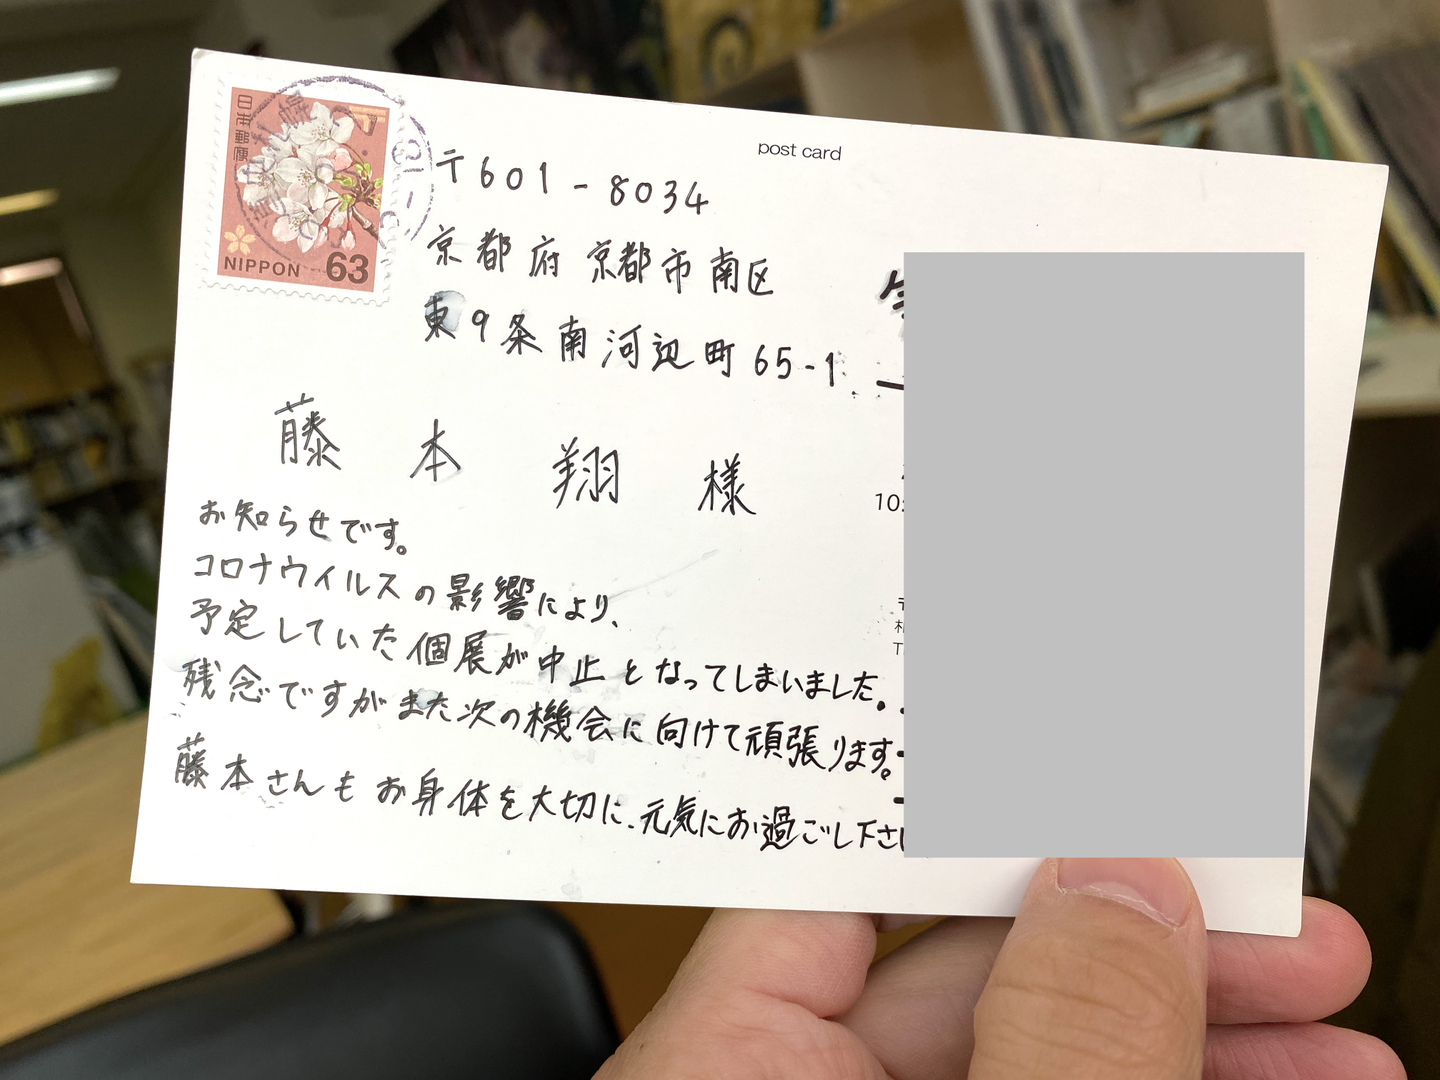 日本郵便
NIPPON 63
post card
〒601-8034
京都府 京都市南区
東9条南河辺町65-1
藤本 翔 様
お知らせです。
コロナウイルスの影響により、
予定していた個展が中止となってしまいました。
残念ですがまた次の機会に向けて頑張ります。
藤本さんもお身体を大切に、元気にお過ごし下さい
10: